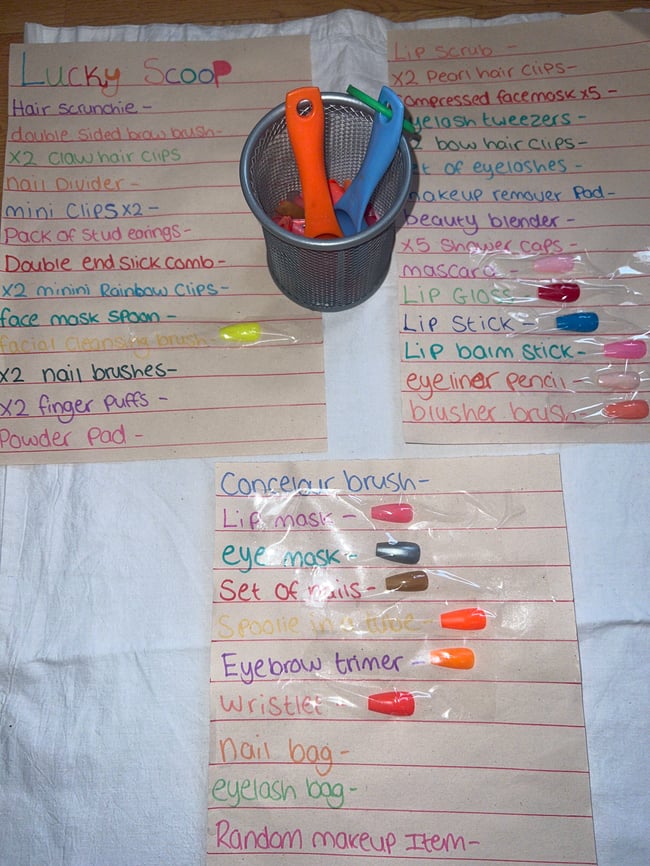 Lucky Scoop
Hair scrunchie -
double sided brow brush-
x2 Claw hair clips
nail Divider -
mini Clips x2 -
Pack of stud earings-
Double end slick comb-
x2 minini Rainbow Clips-
face mask spoon -
facial cleansing brush
x2 nail brushes-
x2 finger puffs -
Powder pad -
Lip scrub -
x2 Pearl hair clips-
ompressed facemask x5 -
yelash tweezers -
bow hair clips-
t of eyelashes -
makeup remover Pad-
beauty blender -
x5 Shower caps -
mascara -
Lip Gloss
Lip Stick -
Lip balm stick-
eyeliner pencil -
blusher brush
Concelour brush-
Lip mask -
eye mask -
Set of nails-
Spoolie in a tube-
Eyebrow trimer -
Wristlet -
nail bag-
eyelash bag-
Random makeup Item-